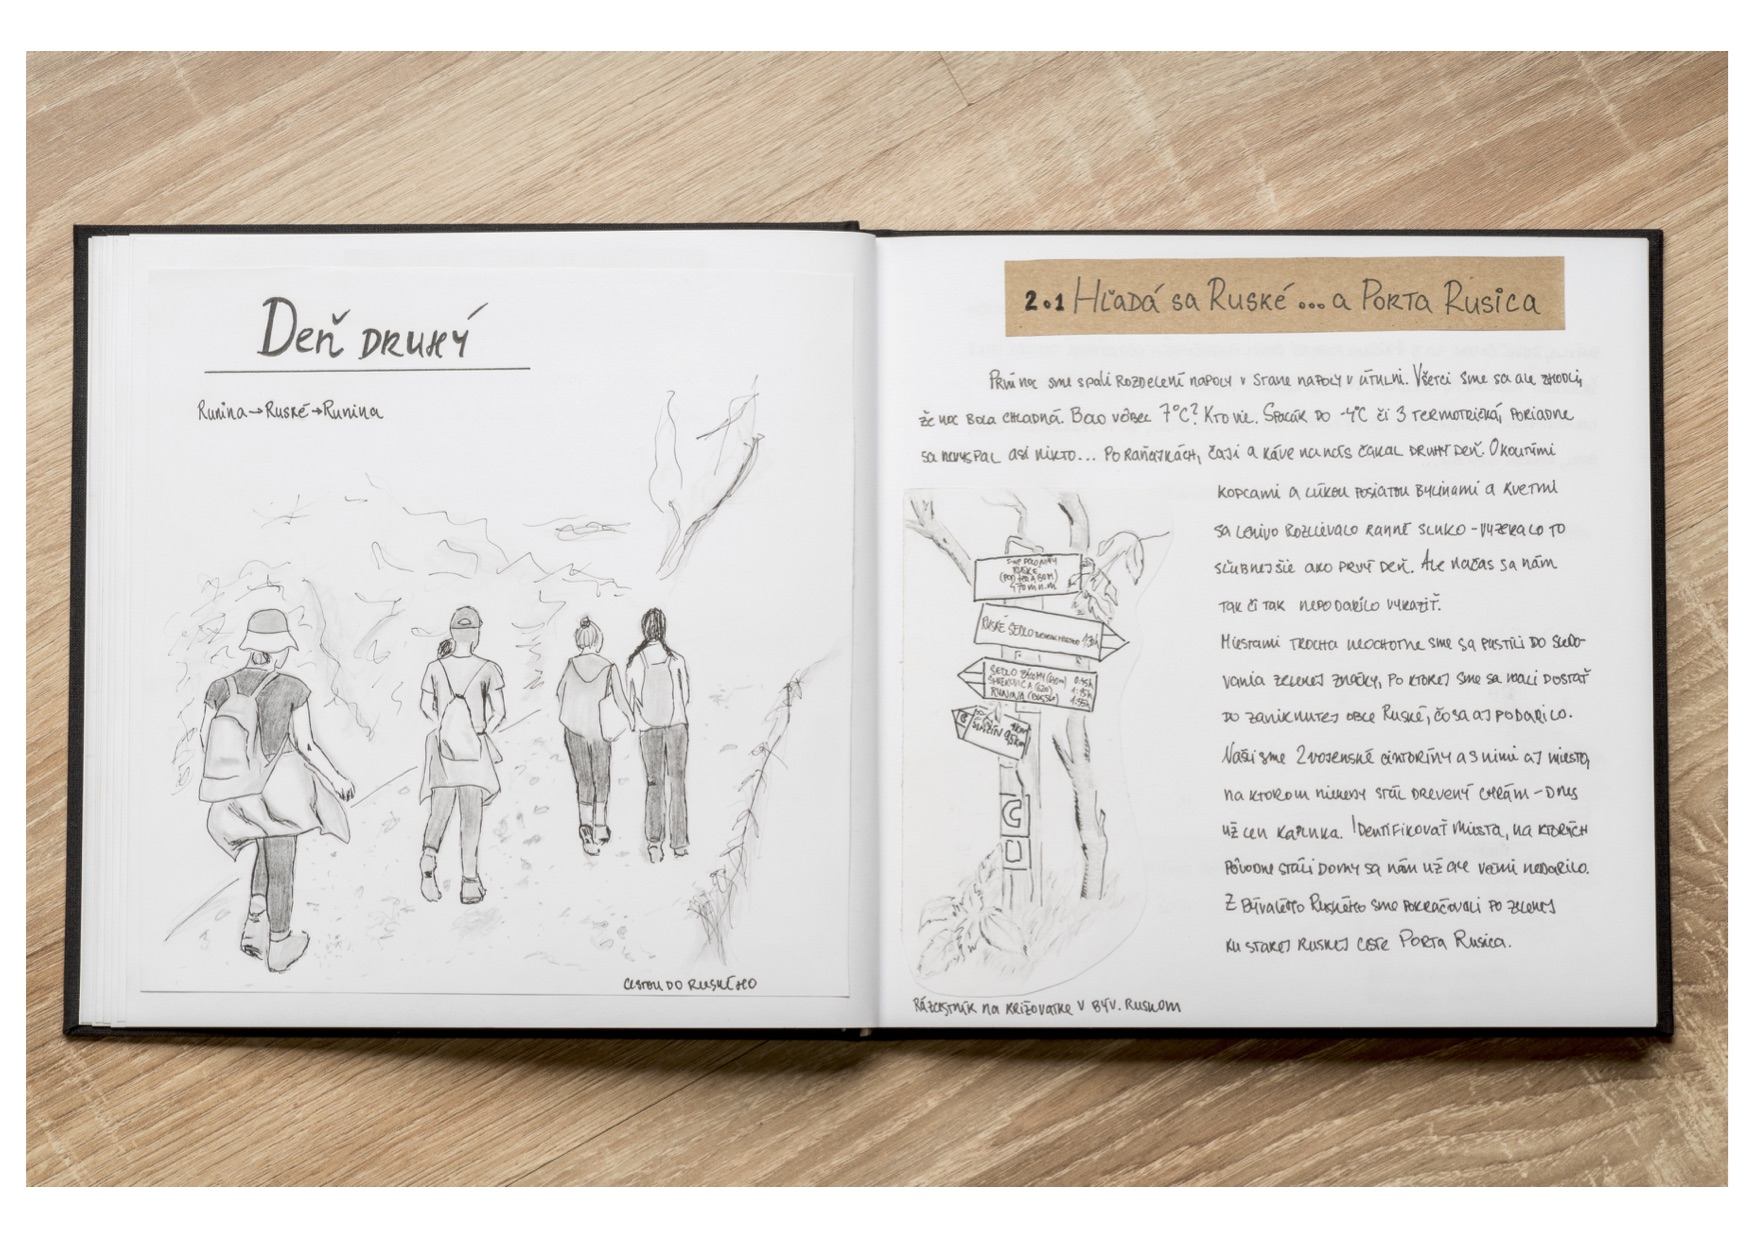 Deň druhý
Runina → Ruské → Runina
cestou do Ruského
2.1 Hľadá sa Ruské ... a Porta Rusica
Prvú noc sme spali rozdelení napoly v stane napoly v útulni. Všetci sme sa ale zhodli,
že noc bola chladná. Bolo vôbec 7°C? Kto vie. Spacák do -4°C či 3 termotričká, poriadne
sa nevyspal asi nikto... Po raňajkách, čaji a káve na nás čakal druhý deň. Okolitými
kopcami a lúkou posiatou bylinami a kvetmi
sa lenivo rozlievalo ranné slnko - vyzeralo to
sľubnejšie ako prvý deň. Ale načas sa nám
tak či tak nepodarilo vyraziť.
Miestami trocha neochotne sme sa pustili do sledo-
vania zelenej značky, po ktorej sme sa mali dostať
do zaniknutej obce Ruské, čo sa aj podarilo.
Našli sme 2 vojenské cintoríny a s nimi aj miesto,
na ktorom niekedy stál drevený chrám - dnes
už len kaplnka. Identifikovať miesta, na ktorých
pôvodne stáli domy sa nám už ale veľmi nedarilo.
Z bývalého Ruského sme pokračovali po zelenej
ku starej ruskej ceste Porta Rusica.
Ruské
470 m n.m
Ruské sedlo 1:30h
Sedlo 0:45h
1:15h
Runina 1:55h
Rázcestník na križovatke v býv. Ruskom